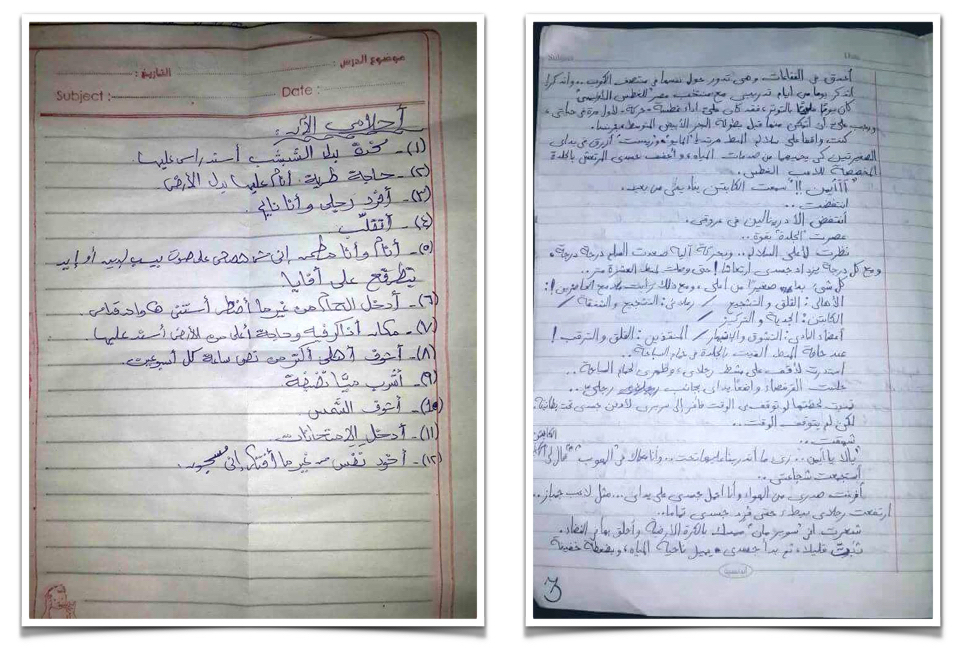 موضوع الدرس : التاريخ :
Subject : Date :
أحلامي الآن :
(١)- كنبة بدل الشبشب أسند راسي عليها
(٢)- حاجة طرية أنام عليها بدل الأرض
(٣)- أفرد رجلي وأنا نايم.
(٤)- أتقلّب
(٥)- أنام وأنا مطمن إني مش هصحى على صوت
يتطرقع على أفايا
(٦)- أدخل الحمام من غير ما أضطر أستنى
(٧)- مكان أفارفيه وحاجة أعلى من الأرض أسند عليها
(٨)- أشوف أهلي أكتر من نص ساعة كل أسبوعين
(٩)- أشرب ميّا نضيفة
(١٠)- أشوف الشمس
(١١)- أدخل الامتحانات
(١٢)- آخد نفس من غير ما أفتكر إني مسجون.
Subject Date
أحدق في الفقاعات وهي تدور حول نفسها في منتصف الكوب.. وأتذكر
أتذكر يوما من أيام تدريبي مع منتخب مصر "للغطس الأوليمبي"
كان يومًا مليئا بالتوتر، فقد كان عليّ أداء غطسة وحركة لأول مرة في حياتي،
ويجب علي أن أتمكن منها قبل بطولة البحر الأبيض المتوسط
كنت واقفا على سلالم المنط مرتديا المايوه و أزرق في يداي
الصغيرتين كي يحميهما من صدمات المياه، وأجفف جسدي المرتعش بالجلدة
المخصصة للاعب الغطس.
"أااايمن!!" سمعت الكابتن ينادي علي من بعيد.
انتفضت..
أنتفض الأدرينالين في عروقي.
عصرت "الجلدة" بقوة..
نظرت لأعلى السلالم.. وبحركة آلية صعدت السلم درجة درجة.
ومع كل درجة يزداد جسدي ارتعاشا! حتى وصلت لمنط العشرة متر..
كل شيء يبدو صغيرًا من أعلى، ومع ذلك رأيت الجميع :
الأهالي: القلق والتشجيع / زملائي: التشجيع والشفقة /
الكابتن: الجدية والتركيز /
أعضاء النادي: التشوق والانبهار / المنقذين: القلق والترقب!
عند حافة المنط ألقيت بالجلدة في حمام السباحة..
استدرت لأقف على مشط رجلاي، وظهري لحمام السباحة..
جلست القرفصاء واضعًا يداي بجانب رجلاي..
تمنيت لحظتها لو توقف بي الوقت فأقفز إلى سريري لأدفن جسدي تحت بطانيتي
لكن لم يتوقف الوقت..
شهقت..
"يالا يا أيمن.. زي ما اتدربنا عليها تحت.. وأنا معاك في "الهوب"" قال لي الكابتن
استجمعت شجاعتي..
أفرغت صدري من الهواء وأنا أحمل جسدي على يداي... مثل لاعب جمباز..
ارتفعت رجلاي ببطء حتى فرد جسدي تماما.
شعرت أني "سوبر مان" ممسك بالكرة الأرضية وأحلق بها في الفضاء.
ثبتّ قليلا، ثم بدأ جسدي يميل ناحية المياه، وبضغطة خفيفة